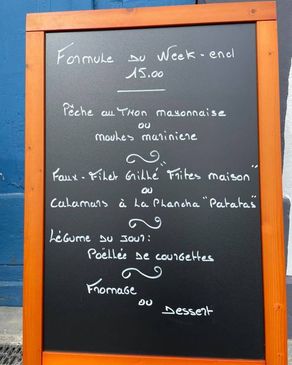 Formule du Week-end
15.00
Pêche au Thon mayonnaise
ou
moules marinière
Faux-Filet Grillé "Frites maison"
ou
Calamars à la Plancha "Patatas"
Légume du Jour:
Poêllée de courgettes
Fromage
ou
Dessert